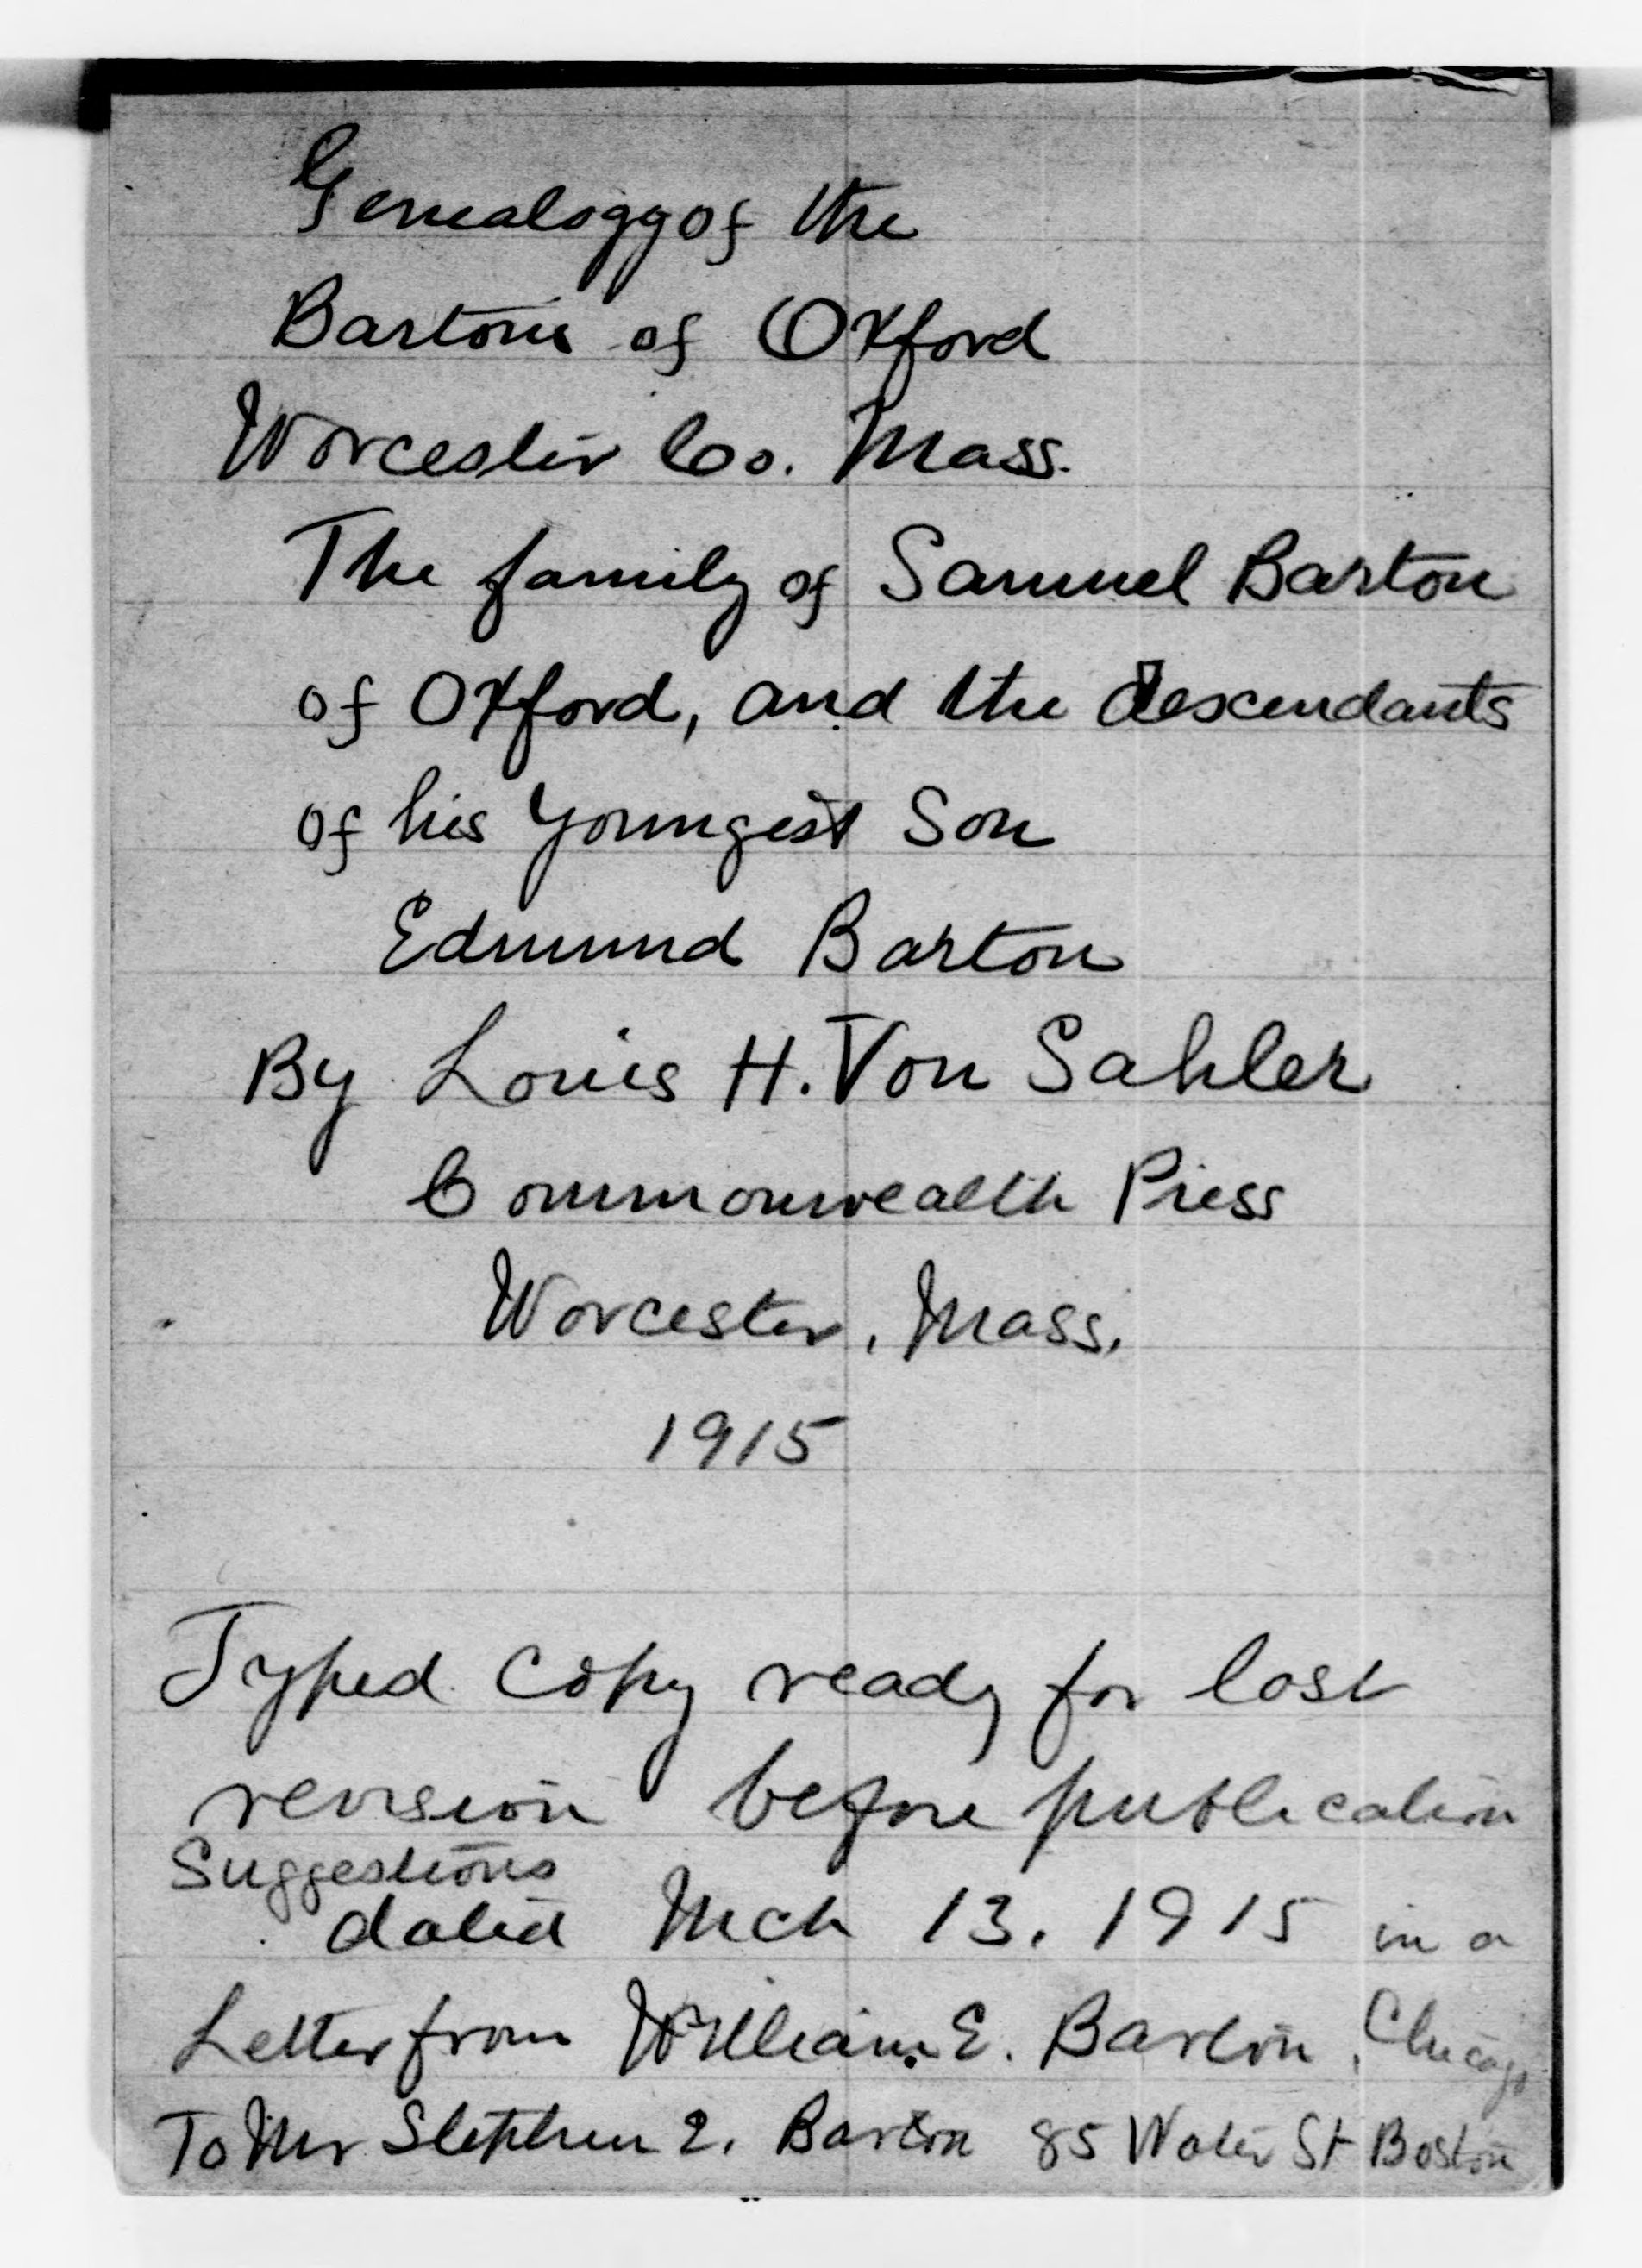 Genealogy of the
Bartons of Oxford
Worcester Co. Mass.
The family of Samuel Barton
of Oxford, and the descendants
of his youngest Son
Edmund Barton
By Louis H. Von Sahler
Commonwealth Press
Worcester, Mass.
1915
Typed Copy ready for last
revision before publication
Suggestions
dated Mch 13. 1915 in a
Letter from William E. Barton, Chicago
To Mr Stephen E. Barton 85 Water St Boston